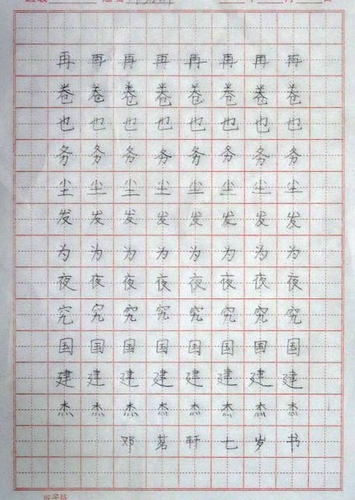 再再再再再再再再
卷卷卷卷卷卷卷卷
也也也也也也也也
务务务务务务务务
尘尘尘尘尘尘尘尘
发发发发发发发发
为为为为为为为为
夜夜夜夜夜夜夜夜
究究究究究究究究
国国国国国国国国
建建建建建建建建
杰杰杰杰杰杰杰杰
邓茗轩七岁书